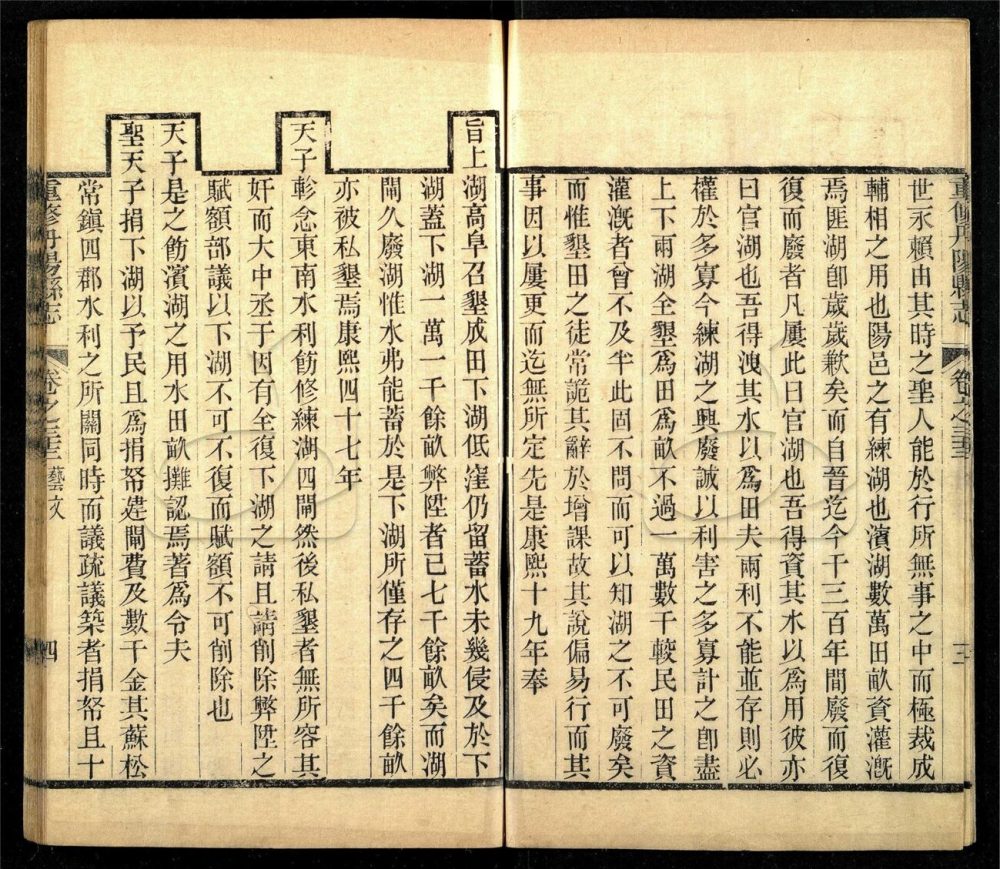 重修丹陽縣志
卷之三十三
三
世永賴由其時之聖人能於行所無事之中而極裁成
輔相之用也陽邑之有練湖也濱湖數萬田畝資灌漑
焉匪湖卽歲歲歉矣而自晉迄今千三百年間廢而復
復而廢者凡屢此曰官湖也吾得資其水以爲用彼亦
曰官湖也吾得洩其水以爲田夫兩利不能並存則必
權於多寡今練湖之興廢誠以利害之多寡計之卽盡
上下兩湖全墾爲田爲畝不過一萬數千較民田之資
灌漑者曾不及半此固不問而可以知湖之不可廢矣
而惟墾田之徒常詭其辭於增課故其說偏易行而其
事因以屢更而迄無所定先是康熙十九年奉
旨上湖高阜召墾成田下湖低窪仍留蓄水未幾侵及於下
湖蓋下湖一萬一千餘畝弊陞者已七千餘畝矣而湖
閘久廢湖惟水弗能蓄於是下湖所僅存之四千餘畝
亦被私墾焉康熙四十七年
天子軫念東南水利飭修練湖四閘然後私墾者無所容其
奸而大中丞于因有全復下湖之請且請削除弊陞之
賦額部議以下湖不可不復而賦額不可削除也
天子是之飭濱湖之用水田畝攤認焉著爲令夫
聖天子捐下湖以予民且爲捐帑建閘費及數千金其蘇松
常鎭四郡水利之所關同時而議疏議築者捐帑且十
重修丹陽縣志
卷之三十三 藝文
四